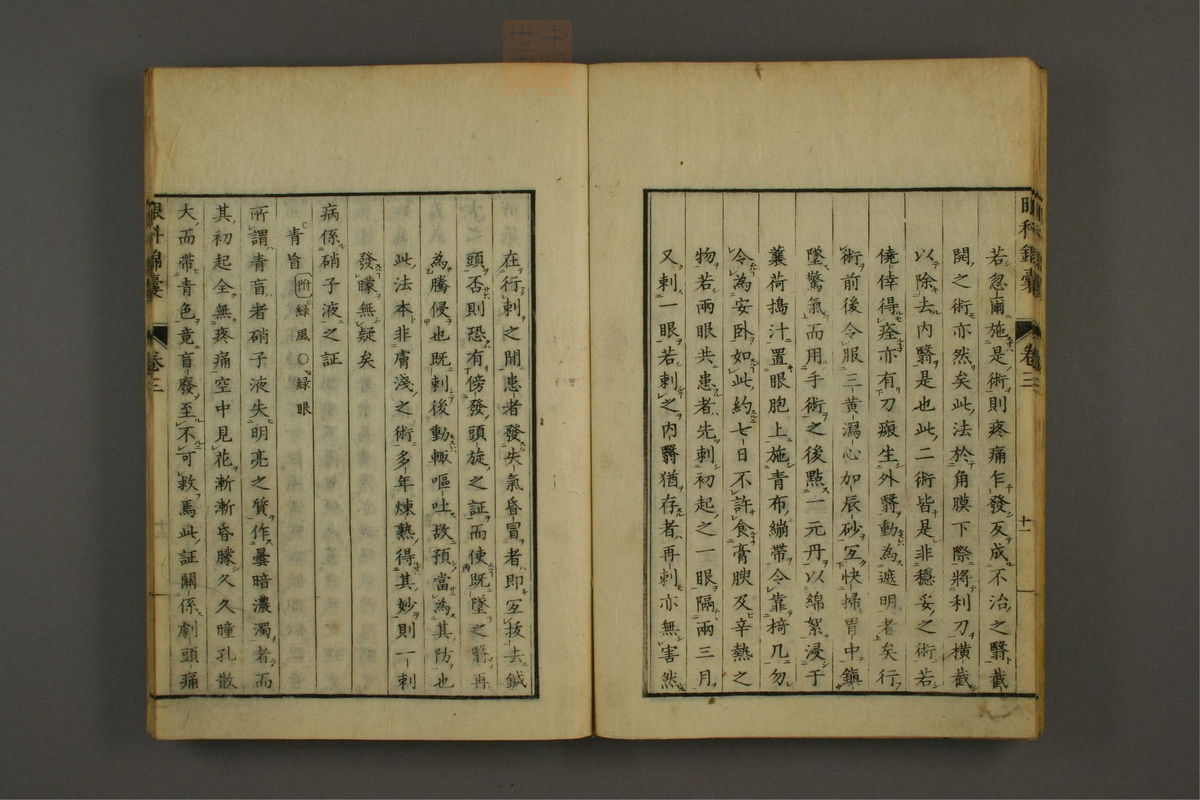 眼科錦囊 卷三 十一
若忽爾施是術則疼痛乍發反成不治之翳截
開之術亦然矣此法於角膜下際將利刀橫截
以除去內翳是也此二術皆是非穩妥之術若
僥倖得痊亦有刀瘢生外翳動為遮明者矣行
術前後令服三黃瀉心加辰砂宜快掃胃中鎮
墜驚氣而用手術之後點一元丹以綿絮浸于
蘘荷搗汁置眼胞上施青布繃帶令靠椅几勿
令為安臥如此約七日不許食膏腴及辛熱之
物若兩眼共患者先刺初起之一眼隔兩三月
又刺一眼若刺之內翳猶存者再刺亦無害然
在行刺之間患者發失氣昏冒者即宜拔去鍼
頭否則恐有傍發頭旋之証而使既墜之翳再
為騰侵也既刺後動輙嘔吐故預當為其防也
此法本非膚淺之術多年煉熟得其妙則一刺
發矇無疑矣
病係硝子液之証
青盲 附 綠風〇綠眼
所謂青盲者硝子液失明亮之質作曇暗濃濁者而
其初起全無疼痛空中見花漸漸昏朦久久瞳孔散
大而帶青色竟盲廢至不可救焉此証關係劇頭痛
眼科錦囊 卷三